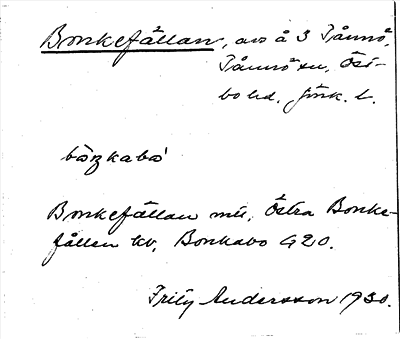 Bonkefällan, avs å 3 Tånnö,
Tånnö sn, Öst-
bo hd. Jönk. l.
Bonkefällan mtl, Östra Bonke-
fällen kv, Bonkabo G20.
Fritz Andersson 1930.